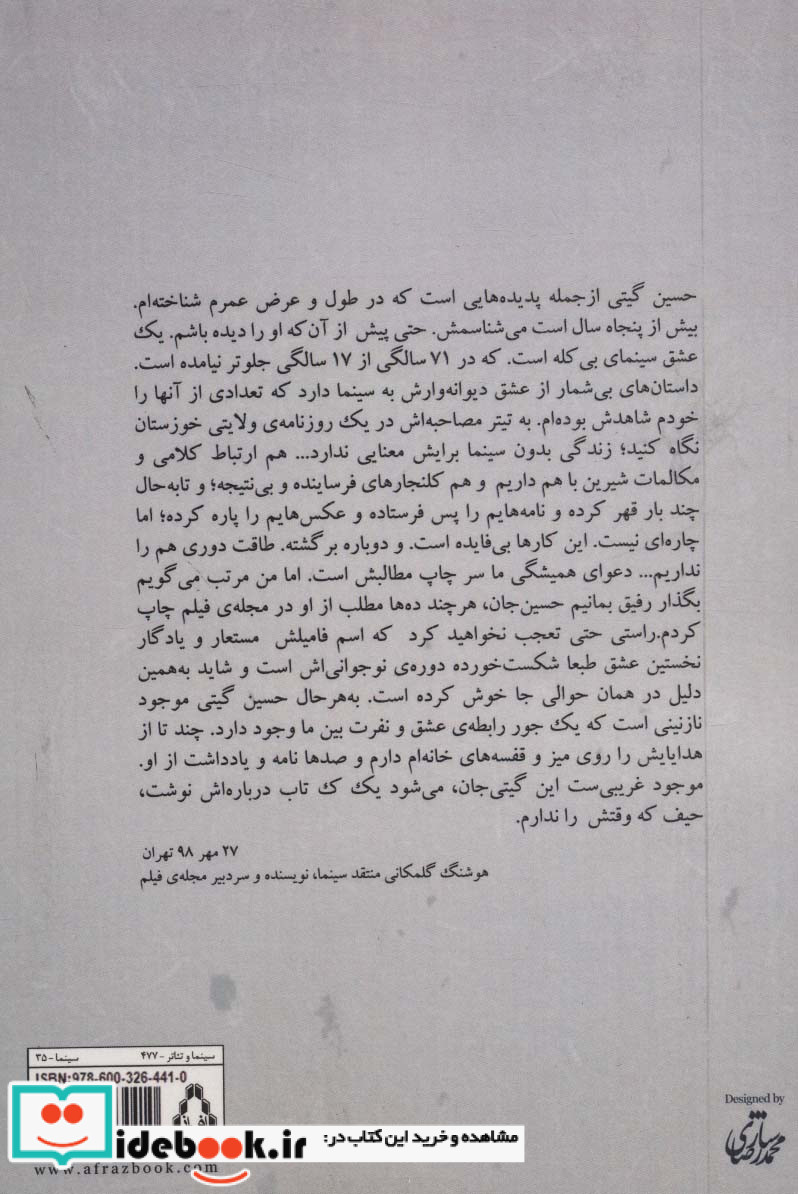 حسین گیتی ازجمله پدیده‌هایی است که در طول و عرض عمرم شناخته‌ام.
بیش از پنجاه سال است می‌شناسمش. حتی پیش از آن‌که او را دیده باشم. یک
عشق سینمای بی‌کله است. که در ۷۱ سالگی از ۱۷ سالگی جلوتر نیامده است.
داستان‌های بی‌شمار از عشق دیوانه‌وارش به سینما دارد که تعدادی از آنها را
خودم شاهدش بوده‌ام. به تیتر مصاحبه‌اش در یک روزنامه‌ی ولایتی خوزستان
نگاه کنید؛ زندگی بدون سینما برایش معنایی ندارد... هم ارتباط کلامی و
مکالمات شیرین با هم داریم و هم کلنجارهای فرساینده و بی‌نتیجه؛ و تابه‌حال
چند بار قهر کرده و نامه‌هایم را پس فرستاده و عکس‌هایم را پاره کرده؛ اما
چاره‌ای نیست. این کارها بی‌فایده است. و دوباره برگشته. طاقت دوری هم را
نداریم... دعوای همیشگی ما سر چاپ مطالبش است. اما من مرتب می‌گویم
بگذار رفیق بمانیم حسین‌جان، هرچند ده‌ها مطلب از او در مجله‌ی فیلم چاپ
کردم.راستی حتی تعجب نخواهید کرد که اسم فامیلش مستعار و یادگار
نخستین عشق طبعا شکست‌خورده دوره‌ی نوجوانی‌اش است و شاید به‌همین
دلیل در همان حوالی جا خوش کرده است. به‌هرحال حسین گیتی موجود
نازنینی است که یک جور رابطه‌ی عشق و نفرت بین ما وجود دارد. چند تا از
هدایایش را روی میز و قفسه‌های خانه‌ام دارم و صدها نامه و یادداشت از او.
موجود غریبی‌ست این گیتی‌جان، می‌شود یک ک تاب درباره‌اش نوشت،
حیف که وقتش را ندارم.
۲۷ مهر ۹۸ تهران
هوشنگ گلمکانی منتقد سینما، نویسنده و سردبیر مجله‌ی فیلم
سینما و تئاتر - ۴۷۷
سینما - ۳۵
ISBN:978-600-326-441-0
Designed by
مشاهده و خرید این کتاب در:
idebook.ir
www.afrazbook.com